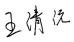 王清沅